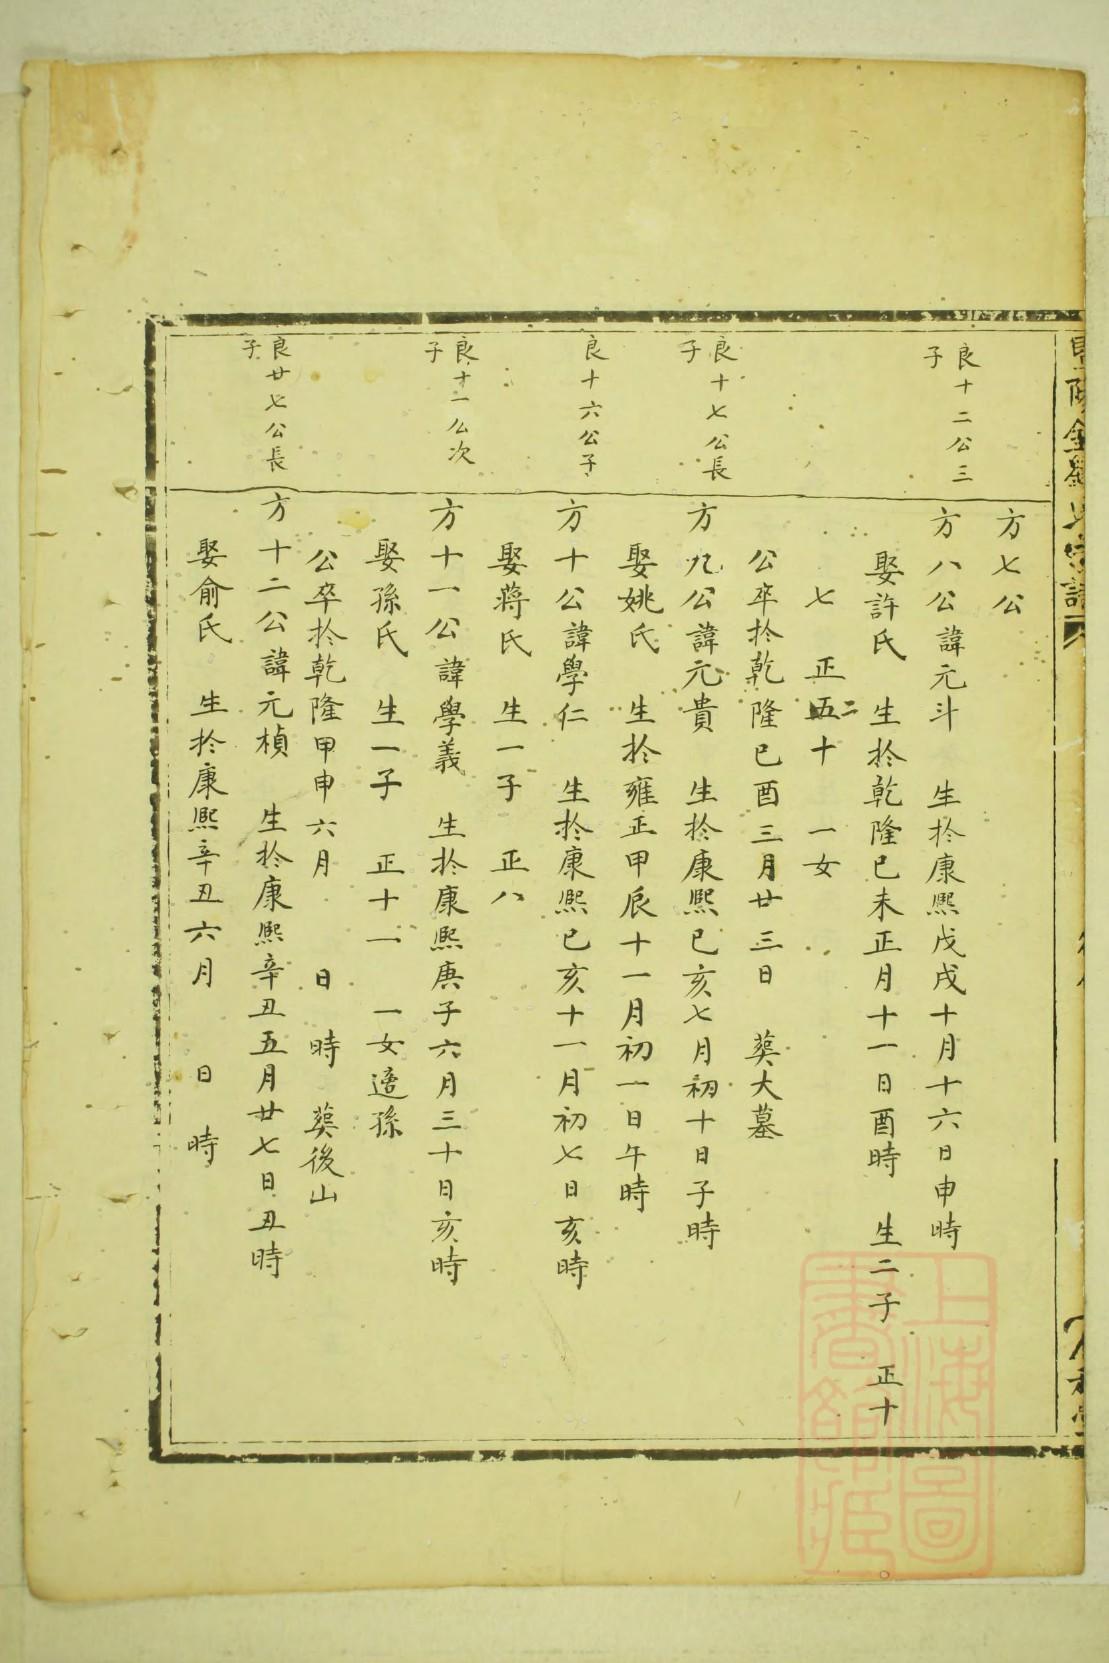 方七公
良十二公三
子
方八公諱元斗 生於康熙戊戌十月十六日申時
娶許氏 生於乾隆已未正月十一日酉時 生二子 正十
七 正五十二 一女
公卒於乾隆已酉三月廿三日 葬大墓
良十七公長
子
方九公諱元貴 生於康熙已亥七月初十日子時
娶姚氏 生於雍正甲辰十一月初一日午時
良十六公子
方十公諱學仁 生於康熙已亥十一月初七日亥時
娶蔣氏 生一子 正八
良十一公次
子
方十一公諱學義 生於康熙庚子六月三十日亥時
娶孫氏 生一子 正十一 一女適孫
公卒於乾隆甲申六月 日 時 葬後山
良廿七公長
子
方十二公諱元楨 生於康熙辛丑五月廿七日丑時
娶俞氏 生於康熙辛丑六月 日 時
上海圖
書館藏